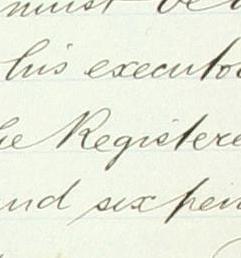 must be
his executo
he Registere
and sixpen